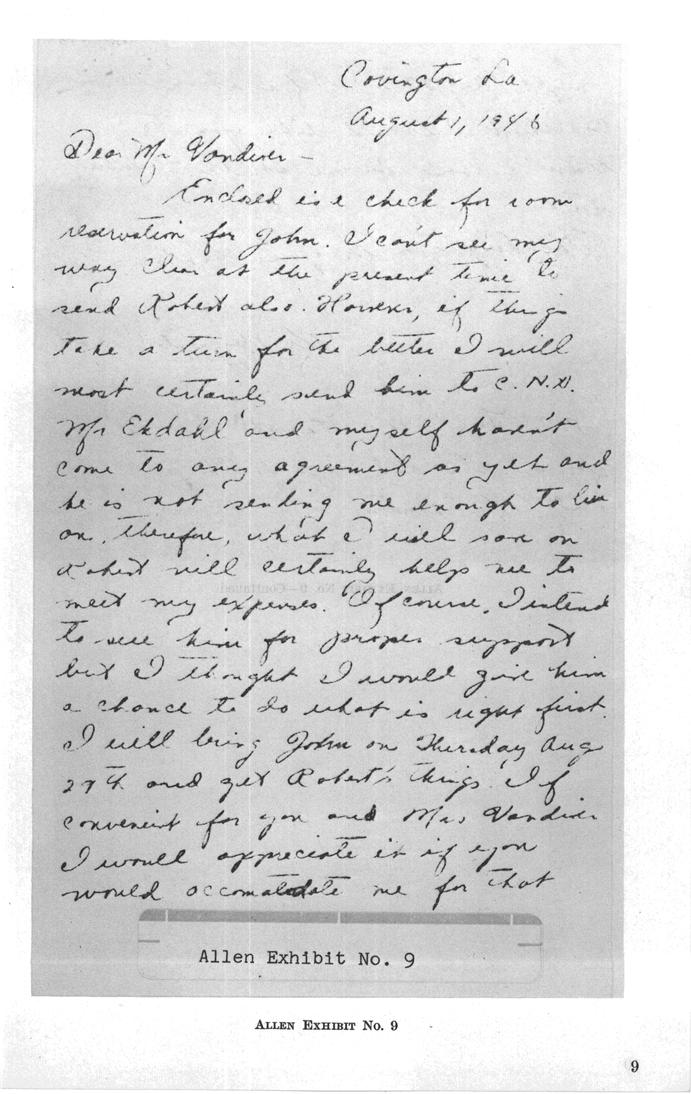 Covington La
August 1, 1946
Dear Mr Vandiver –
Enclosed is a check for room
reservation for John. I can't see my
way clear at the present time to
send Robert also. However, if things
take a turn for the better I will
most certainly send him to C.N.A.
Mr Ekdahl and myself haven't
come to any agreement as yet and
he is not sending me enough to live
on, therefore, what I will save on
Robert will certainly help me to
meet my expenses. Of course, I intend
to sue him for proper support
but I thought I would give him
a chance to do what is right first.
I will bring John on Thursday Aug
29th and get Robert's things. If
convenient for you and Mrs Vandiver
I would appreciate it if you
would accomatedate me for that
Allen Exhibit No. 9
ALLEN EXHIBIT No. 9
9